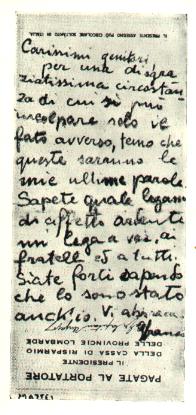 IL PRESENTE ASSEGNO PUÒ CIRCOLARE SOLTANTO IN ITALIA
Carissimi genitori
per una disgra
ziatissima circostan
za di cui si può
incolpare solo il
fato avverso, temo che
queste saranno le
mie ultime parole.
Sapete quale legame
di affetto ardente
mi lega a voi, ai
fratelli ed a tutti.
Siate forti sapendo
che lo sono stato
anch'io. Vi abbraccio
PAGATE AL PORTATORE
IL PRESIDENTE
DELLA CASSA DI RISPARMIO
DELLE PROVINCIE LOMBARDE